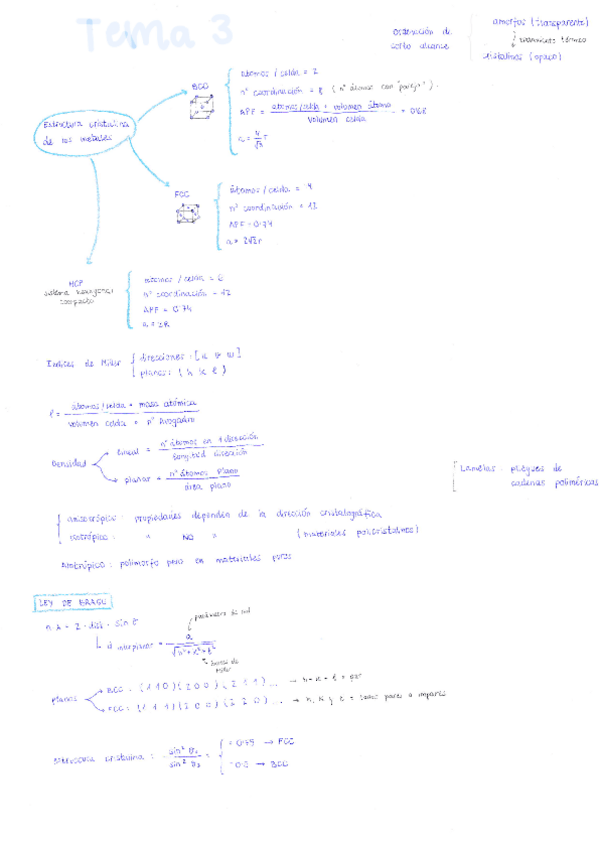 Tema 3
Ordenación de corto alcance
amorfos (transparente)
tratamiento térmico
cristalinos (opaco)
Estructura cristalina de los metales
BCC
átomos / celda = 2
nº coordinación = 8
APF = átomos/celda * volumen átomo / volumen celda = 0'68
a = 4/√3 r
FCC
Átomos / celda = 4
nº coordinación = 12
APF = 0'74
a = 2√2 r
HCP
sistema hexagonal compacto
átomos / celda = 6
nº coordinación = 12
APF = 0'74
a = 2R
Indices de Miller
direcciones: [u v w]
planos: (h k l)
ρ = átomos/celda * masa atómica / volumen celda * nº Avogadro
Densidad
lineal = nº átomos en 1 dirección / longitud dirección
planar = nº átomos plano / área plano
Lamelas: pliegues de cadenas poliméricas
anisotrópico: propiedades dependen de la dirección cristalográfica
isotrópico: " NO " (materiales policristalinos)
Alotrópico: polimorfo pero en materiales puros
LEY DE BRAGG
n·λ = 2·dhkl·sin θ
parámetro de red
d interplanar = a / √h²+k²+l²
Planos
BCC: (110)(200)(211)... → h+k+l = par
FCC: (111)(200)(220)... → h, k y l = todos pares o impares
Estructura cristalina: sin² θ₁ / sin² θ₂
= 0'75 → FCC
→ BCC